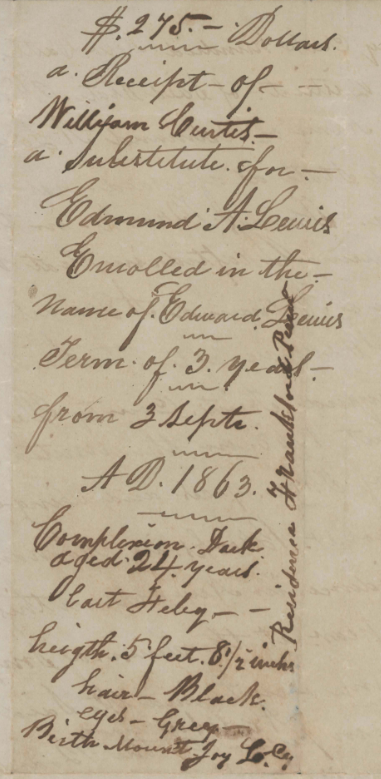 $.275.– Dollars.
a. Receipt – of –
William Curtis –
a. Substitute. for –
Edmund A. Lewis
Enrolled in the –
name of. Edward Lewis
Term. of. 3. years. –
from 3 Septr.
A D. 1863.
Complexion. Dark
aged. 24. years.
last Feby – –
heigth. 5 feet. 8 1/2 inchs
hair – Black.
eyes – Grey –
Birth Mount Joy L. Cy
Residence Frankford